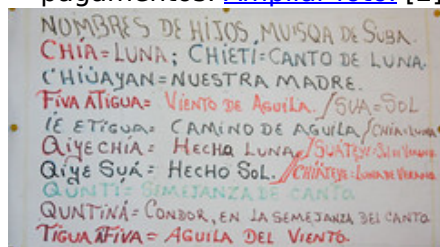 pagamentos. Ampliar foto. [2]
NOMBRES DE HIJOS, MUISQA DE SUBA.
CHÍA=LUNA; CHIETÍ=CANTO DE LUNA.
CHIÚAYAN=NUESTRA MADRE.
FIVA ATIGUA= VIENTO DE AGUILA. /SUA=SOL
IE ETIGUA= CAMINO DE AGUILA /CHÍA=LUNA
QIYE CHÍA= HECHA LUNA /SUÁTEYE=SOL DE VERANO
QIYE SUÁ= HECHO SOL. /CHIÁTEYE=LUNA DE VERANO
QUNTÍ= SEMEJANZA DE CANTO
QUNTINÁ= CONDOR, EN LA SEMEJANZA DEL CANTO
TIGUA ATIFIVA= AGUILA DEL VIENTO.